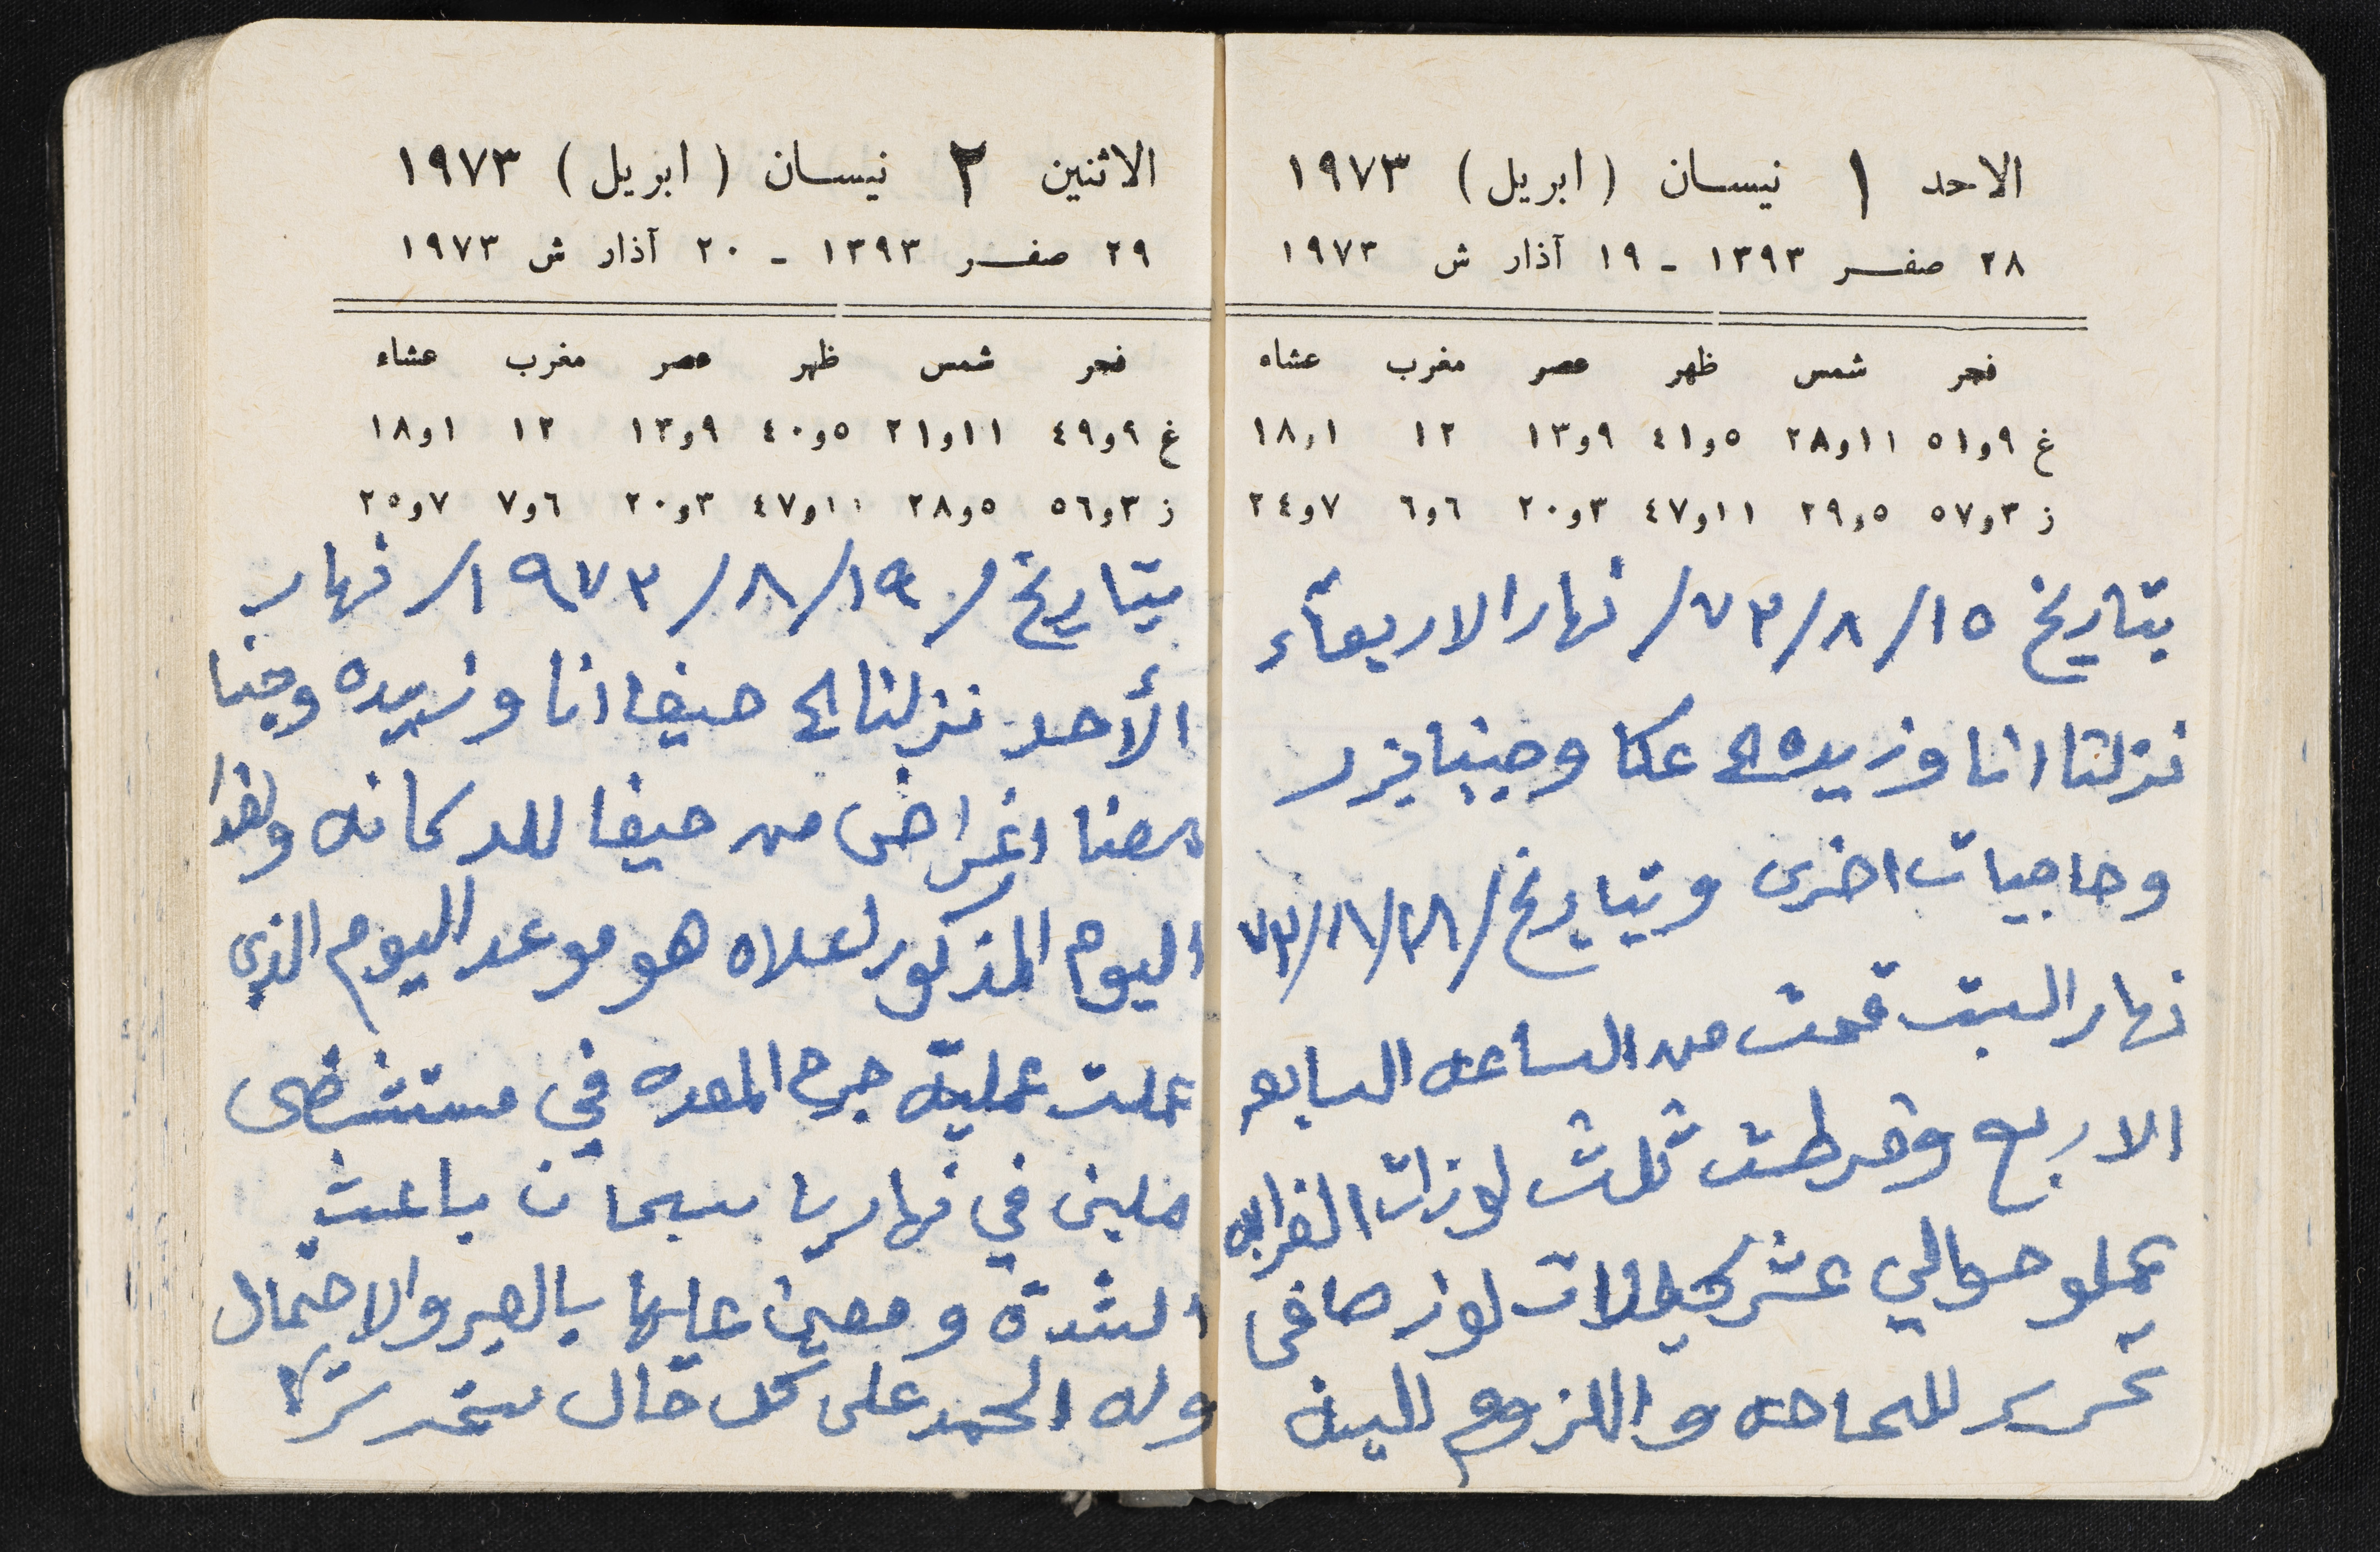 الاحد ١ نيسان (ابريل) ١٩٧٣
٢٨ صفر ١٣٩٣ - ١٩ آذار ش ١٩٧٣
فجر شمس ظهر عصر مغرب عشاء
غ ٩و٥١ ١١و٢٨ ٥و٤١ ٩و١٣ ١٢ ١و١٨
ز ٣و٥٧ ٥و٢٩ ١١و٤٧ ٣و٢٠ ٦و٦ ٧و٢٤
بتاريخ ١٥/٨/٧٣/ نهار الاربعاء
نزلنا انا وزيده الى عكا وجبنا
وحاجيات اخرى وبتاريخ/٢٨/٨/٧٣
نهار السبت قمت من الساعه السابعه
الاربع وفرطت ثلث لوزات
يحملو حوالي عشر كيلوات لوز صافي
تحرير للحاجه واللزوم
الاثنين ٢ نيسان (ابريل) ١٩٧٣
٢٩ صفر ١٣٩٣ - ٢٠ آذار ش ١٩٧٣
فجر شمس ظهر عصر مغرب عشاء
غ ٩و٤٩ ١١و٢١ ٥و٤٠ ٩و١٣ ١٢ ١و١٨
ز ٣و٥٦ ٥و٢٨ ١١و٤٧ ٣و٢٠ ٦و٧ ٧و٢٥
بتاريخ/١٩/٨/١٩٧٣/ نهار
الأحد نزلنا الى حيفا انا وزيده وجبنا
معنا اغراض من حيفا للدكانه وهذا
اليوم المذكور اعلاه هو موعد اليوم الذي
عملت عملية جرح المعده في مستشفى
في نهاريا سبحان باعث
الشدة ومعين عليها بالصبر والاحتمال
وله الحمد على كل حال